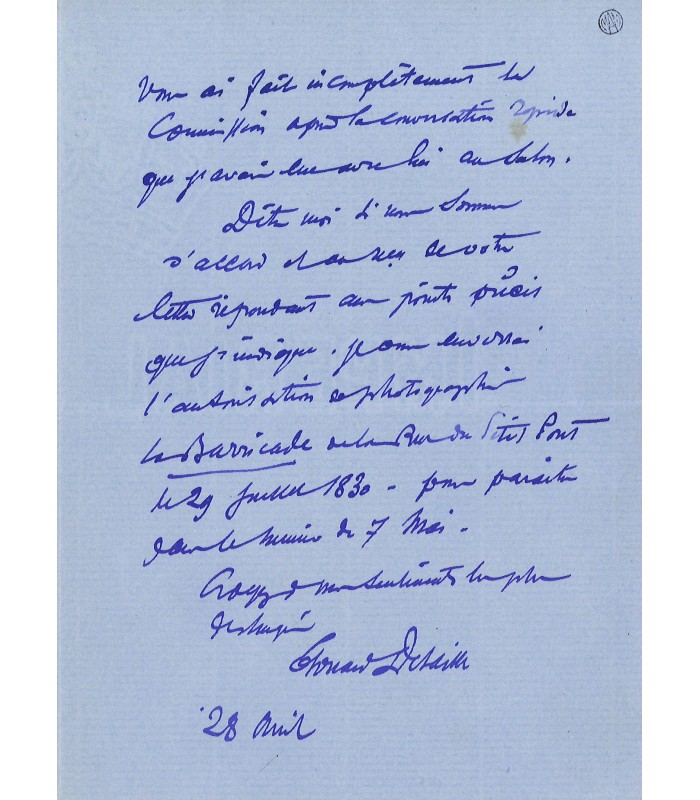 vous ai fait incomplètement la
Commission après la conversation rapide
que j'avais eue avec lui au Salon.
Dites moi si nous sommes
d'accord et au reçu de votre
lettre répondant aux points précis
que j'indique. je vous enverrai
l'autorisation de photographier
la Barricade de la Rue du Petit Pont
le 29 Juillet 1830 - pour paraître
dans le numéro du 7 Mai.
Croyez à mes sentiments les plus
distingués
Edouard Detaille
28 Avril